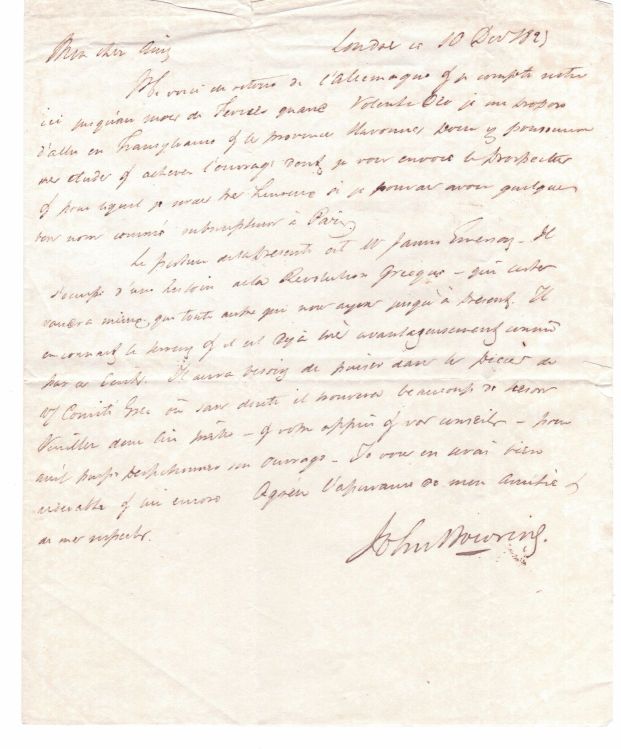 Mon cher Ami
Londres ce 10 Decr 182
Me voici de retour de l'Allemagne & je compte rester
ici jusqu'au mois de quand Volente Deo je me propose
d'aller en Transylvanie & les provinces pour y poursuivre
mes etudes & achever l'ouvrage dont je vous envoie le Prospectus
& pour lequel je serais tres heureux si je pouvais avoir quelques
bon noms comme subscripteur à Paris.
Le porteur de la presente est Mr James Emerson. Il
s'occupe d'une histoire de la Revolution Grecque - qui certes
vaudra mieux que toute autre qui nous ayons jusqu'à present. Il
en connait le terrein & il est dejà très avantageusement connu
par ses Ecrits. Il aura besoin de puiser dans le de
vos Comité Grec où sans doute il trouvera beaucoup de
Veuillez donc lui preter - & votre appui & vos conseils - pour
qu'il puisse perfectionner son ouvrage - Je vous en serai bien
& lui encore Agréez l'assurance de mon amitié &
de mes respects.
John Bowring.